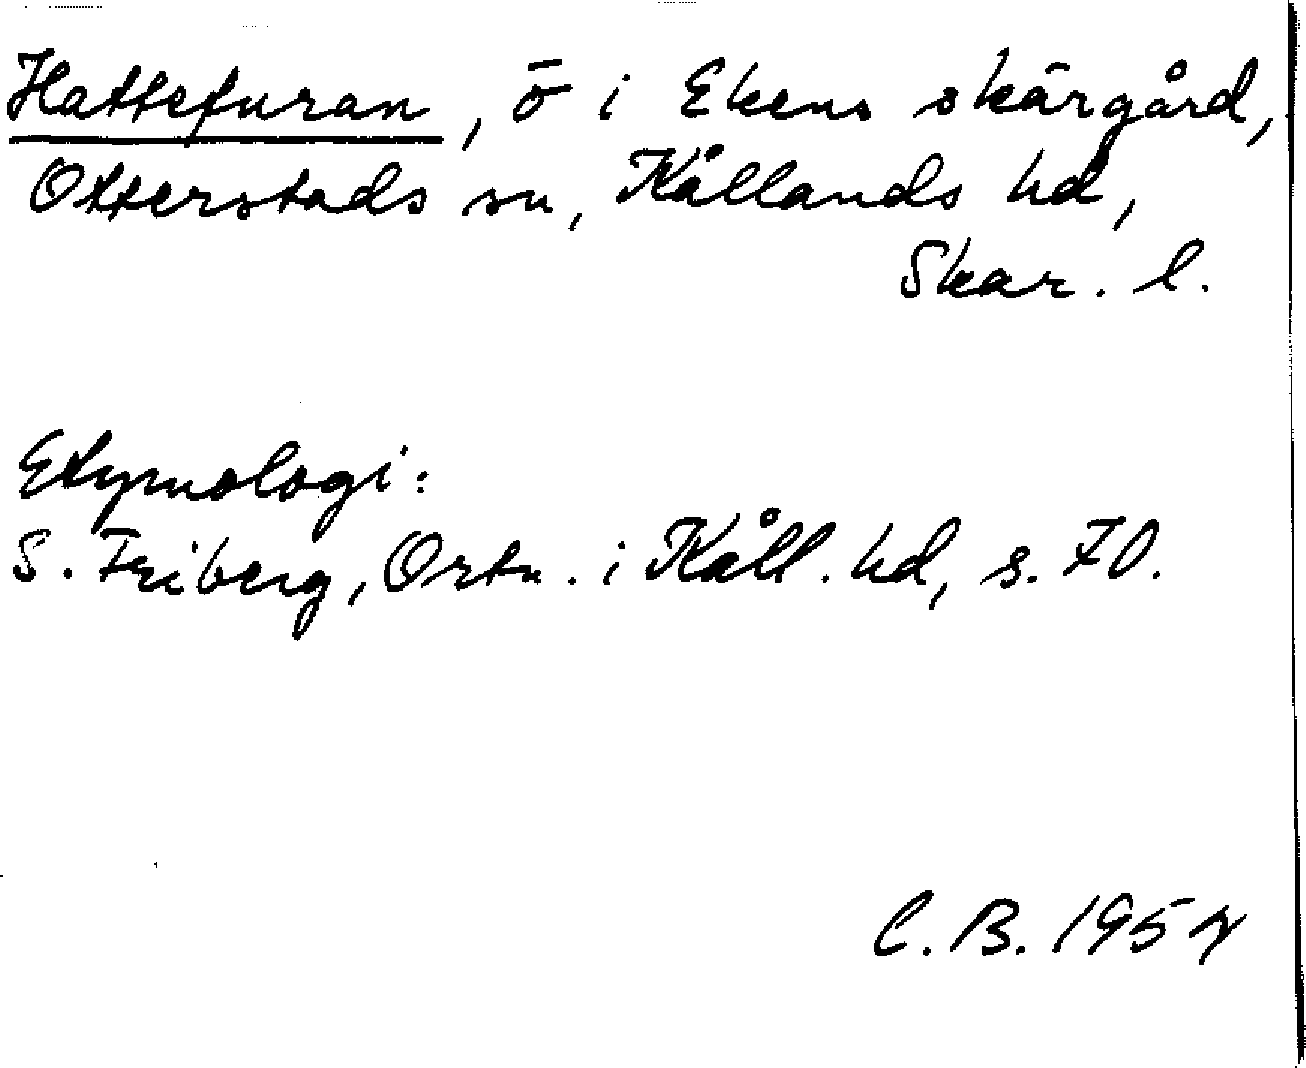 Hattefuran, ö i Ekens skärgård,
Otterstads sn, Kållands hd,
Skar. l.
Etymologi:
S. Friberg, Ortn. i Kåll. hd, s. 70.
C. B. 1954